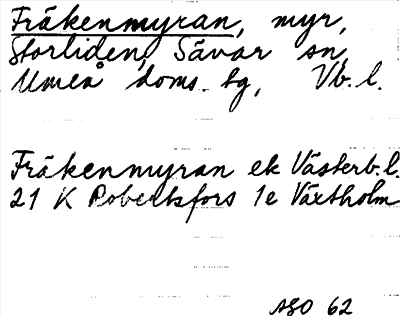 Fräkenmyran, myr,
Storliden, Sävar sn,
Umeå doms. tg, Vb. l.
Fräkenmyran ek Västerb. l.
21 K Robertsfors 1e Växtholm
ASO 62